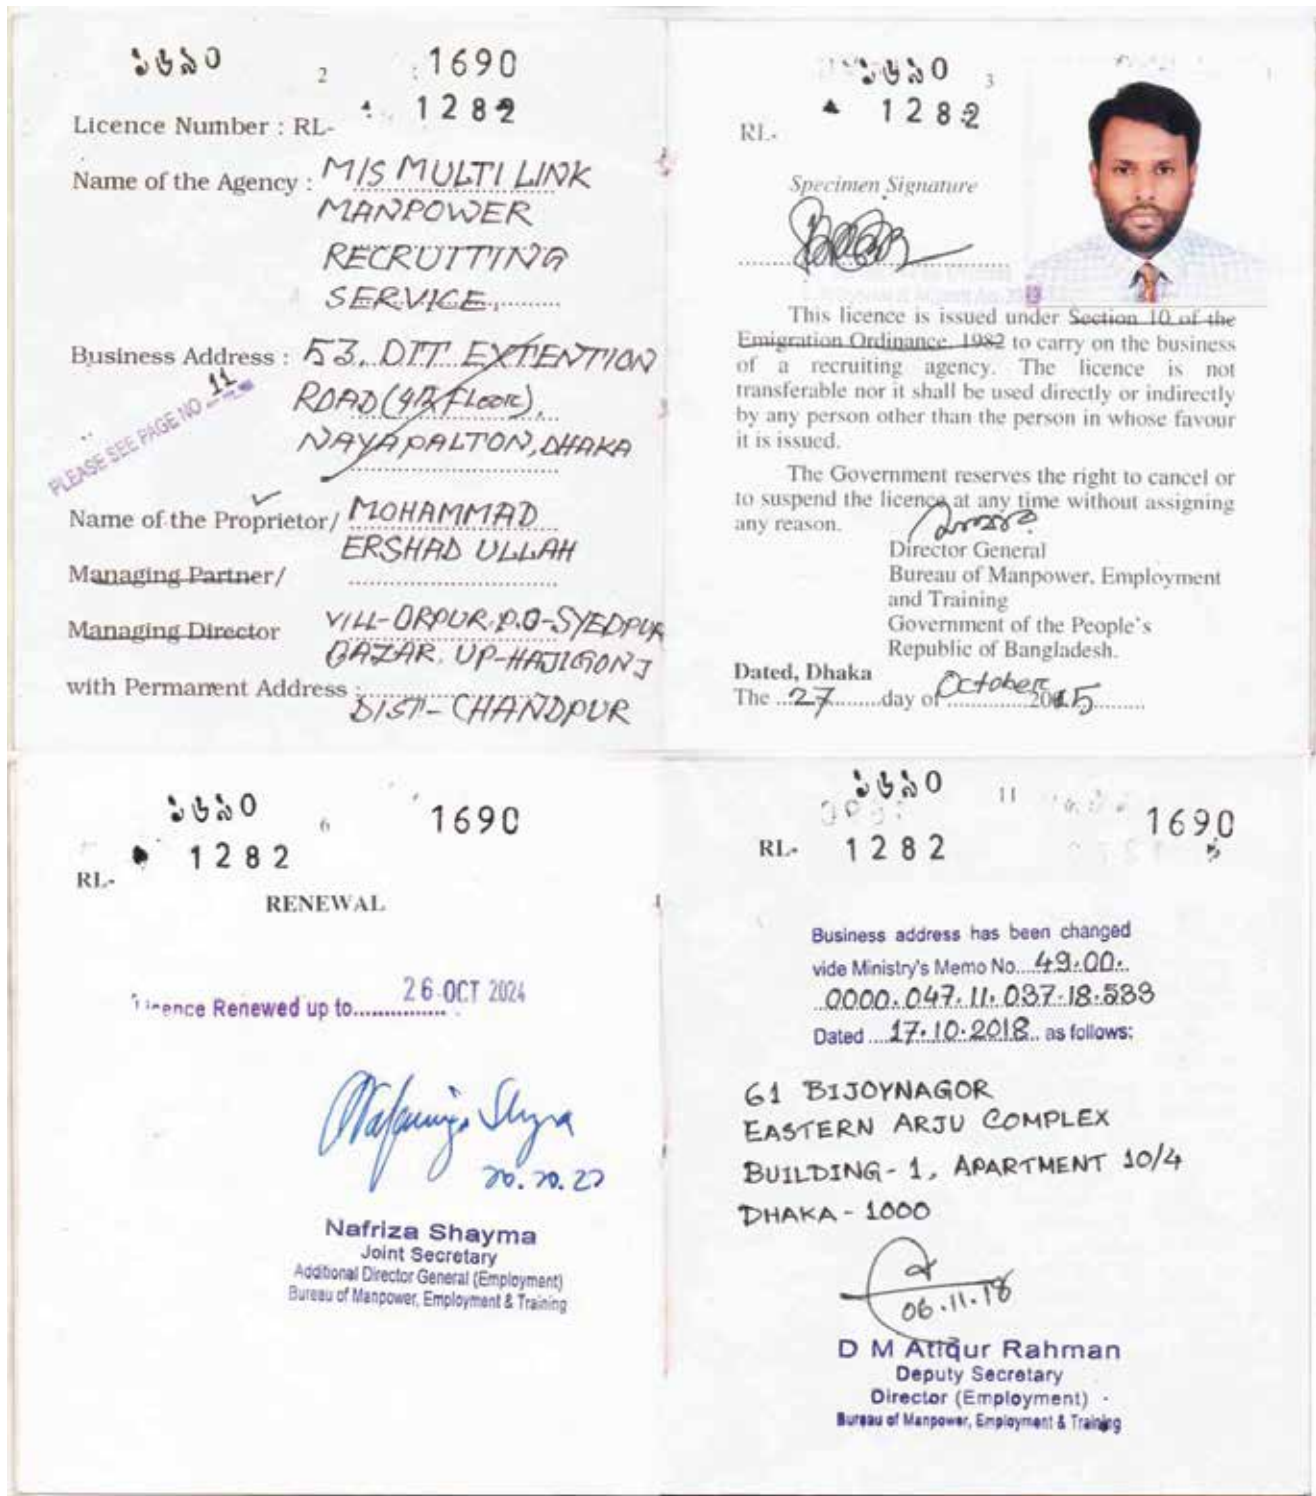 ১৬৯০
2
1690
Licence Number : RL- 1282
Name of the Agency : M/S MULTI LINK
MANPOWER
RECRUTTING
SERVICE,
Business Address : 53, DIT EXTENTION
ROAD (4th Floor),
NAYA PALTON, DHAKA
PLEASE SEE PAGE NO 11
Name of the Proprietor/ MOHAMMAD
ERSHAD ULLAH
Managing Partner/
Managing Director VILL-ORPUR. P.O-SYEDPUR
BAZAR, UP-HAJIGONJ
with Permanent Address :
DIST- CHANDPUR
১৬৯০
3
RL- 1282
Specimen Signature
This licence is issued under Section 10 of the
Emigration Ordinance, 1982 to carry on the business
of a recruiting agency. The licence is not
transferable nor it shall be used directly or indirectly
by any person other than the person in whose favour
it is issued.
The Government reserves the right to cancel or
to suspend the licence at any time without assigning
any reason.
Director General
Bureau of Manpower, Employment
and Training
Government of the People's
Republic of Bangladesh.
Dated, Dhaka
The 27 day of October 2015
১৬৯০
6
1690
RL- 1282
RENEWAL
Licence Renewed up to 26 OCT 2024
Nafriza Shayma
Joint Secretary
Additional Director General (Employment)
Bureau of Manpower, Employment & Training
১৬৯০
11
1690
RL- 1282
Business address has been changed
vide Ministry's Memo No. 49.00.
0000.047.11.037.18.533
Dated 17.10.2018 as follows:
61 BIJOYNAGOR
EASTERN ARJU COMPLEX
BUILDING - 1, APARTMENT 10/4
DHAKA - 1000
06.11.18
D M Atiqur Rahman
Deputy Secretary
Director (Employment)
Bureau of Manpower, Employment & Training